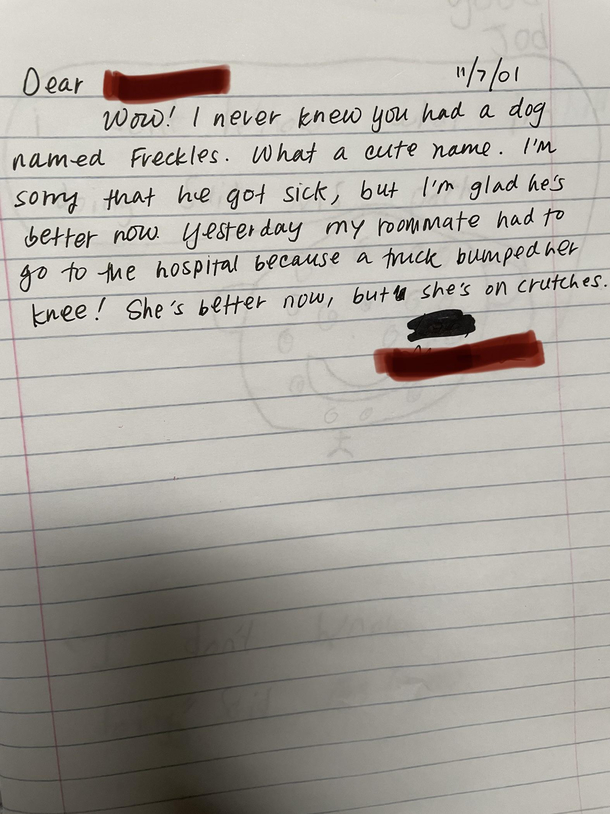 Good
Job
Dear
11/7/01
Wow! I never knew you had a dog
named Freckles. What a cute name. I'm
sorry that he got sick, but I'm glad he's
better now. Yesterday my roommate had to
go to the hospital because a truck bumped her
knee! She's better now, but she's on crutches.